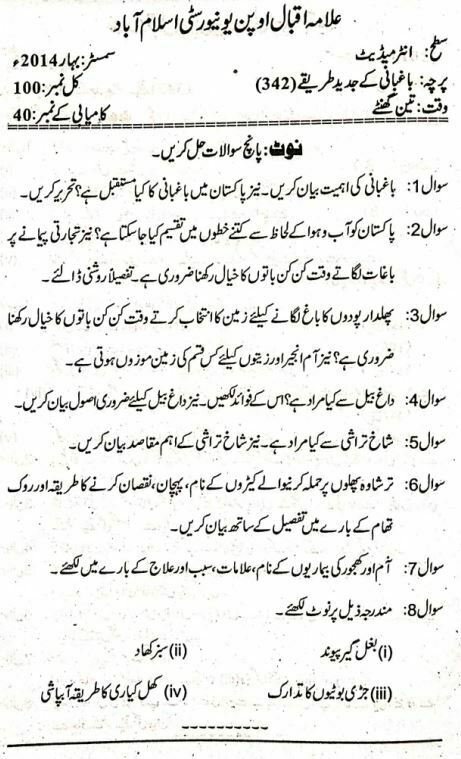 علامہ اقبال اوپن یونیورسٹی اسلام آباد
سطح: انٹرمیڈیٹ سمسٹر: بہار 2014ء
پرچہ: باغبانی کے جدید طریقے (342) کل نمبر: 100
وقت: تین گھنٹے کامیابی کے نمبر: 40
نوٹ: پانچ سوالات حل کریں۔
سوال 1: باغبانی کی اہمیت بیان کریں۔ نیز پاکستان میں باغبانی کا کیا مستقبل ہے؟ تحریر کریں۔
سوال 2: پاکستان کو آب و ہوا کے لحاظ سے کتنے خطوں میں تقسیم کیا جا سکتا ہے؟ نیز تجارتی پیمانے پر
باغات لگاتے وقت کن کن باتوں کا خیال رکھنا ضروری ہے۔ تفصیلاً روشنی ڈالئے۔
سوال 3: پھلدار پودوں کا باغ لگانے کیلئے زمین کا انتخاب کرتے وقت کن کن باتوں کا خیال رکھنا
ضروری ہے؟ نیز آم انجیر اور زیتوں کیلئے کس قسم کی زمین موزوں ہوتی ہے۔
سوال 4: داغ بیل سے کیا مراد ہے؟ اس کے فوائد لکھیں۔ نیز داغ بیل کیلئے ضروری اصول بیان کریں۔
سوال 5: شاخ تراشی سے کیا مراد ہے۔ نیز شاخ تراشی کے اہم مقاصد بیان کریں۔
سوال 6: ترشاوہ پھلوں پر حملہ کرنیوالے کیڑوں کے نام، پہچان، نقصان کرنے کا طریقہ اور روک
تھام کے بارے میں تفصیل کے ساتھ بیان کریں۔
سوال 7: آم اور کھجور کی بیماریوں کے نام، علامات، سبب اور علاج کے بارے میں لکھئے۔
سوال 8: مندرجہ ذیل پر نوٹ لکھئے۔
(i) بغل گیر پیوند (ii) سبز کھاد
(iii) جڑی بوٹیوں کا تدارک (iv) کھل کیاری کا طریقہ آبپاشی